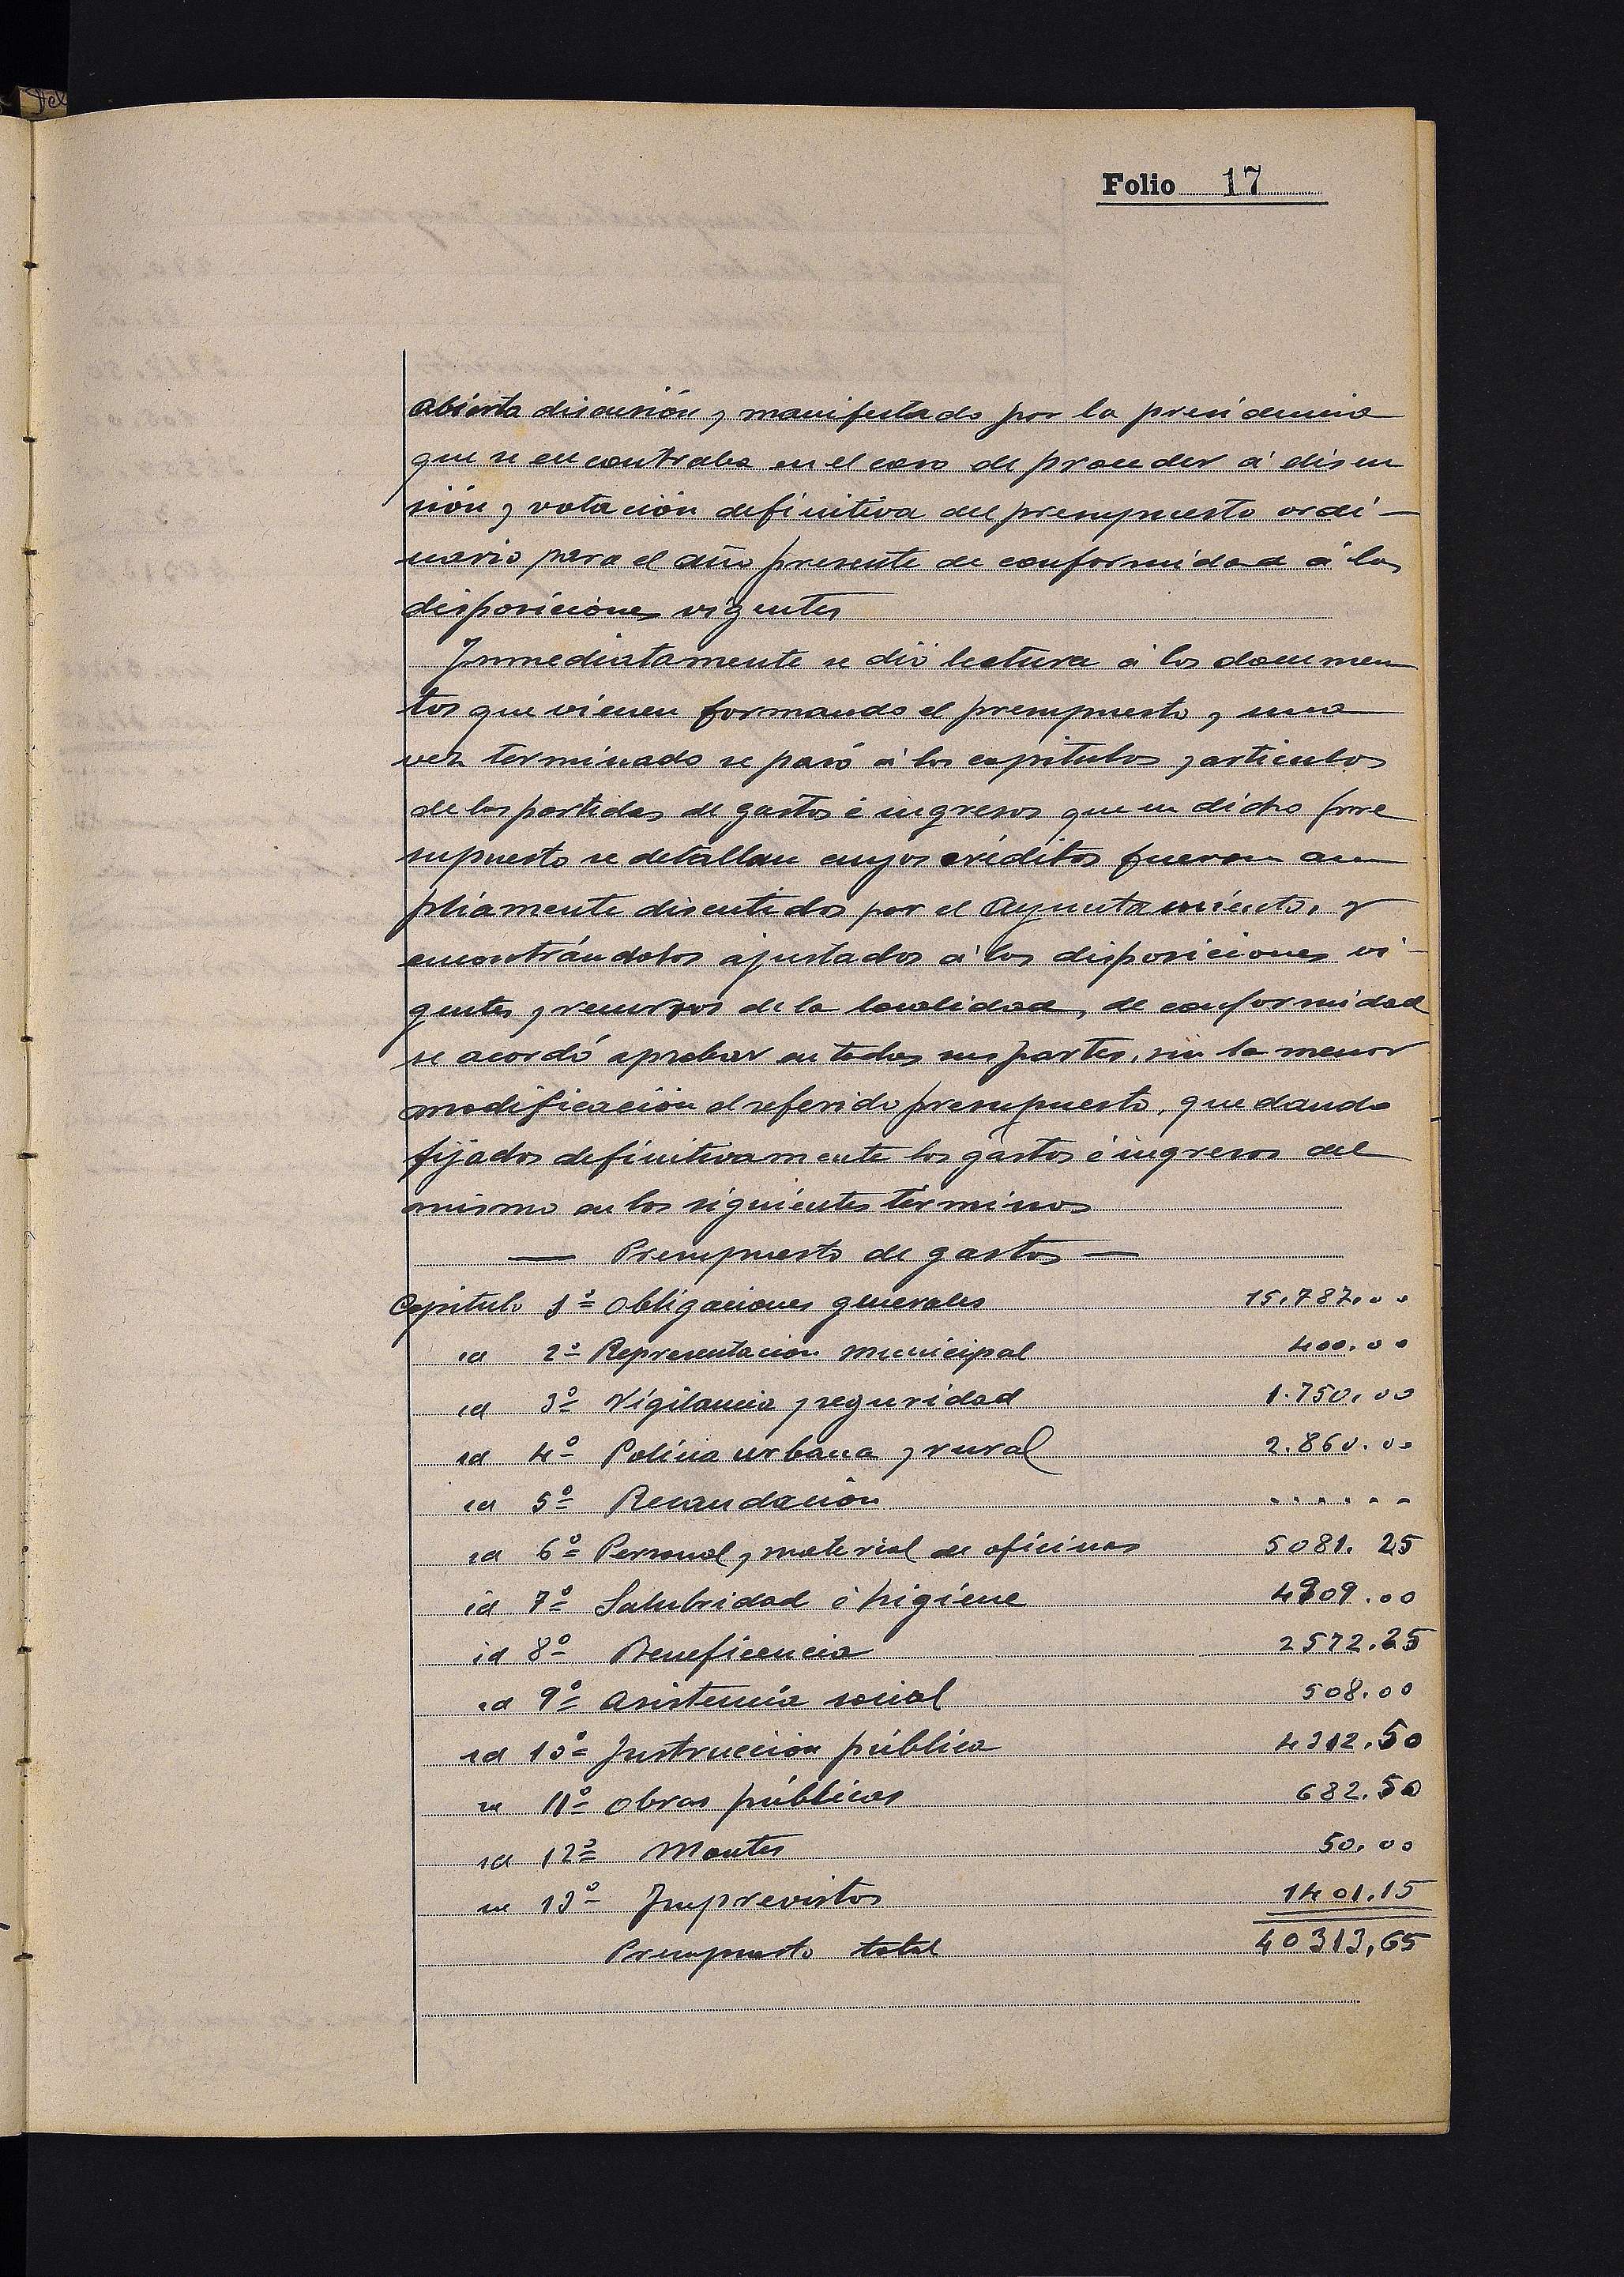 Folio 17
abierta discusión y manifestado por la presidencia
que se encontraba en el caso de proceder á discu
sión y votación definitiva del presupuesto ordi-
nario para el año presente de conformidad á las
disposiciones vigentes
Inmediatamente se dió lectura á los documen
tos que vienen formando el presupuesto, y una
vez terminado se pasó á los capitulos y articulos
de las partidas de gastos é ingresos que en dicho pre
supuesto se detallan cuyos créditos fueron am
pliamente discutidos por el Ayuntamiento, y
encontrándolos ajustados á las disposiciones vi-
gentes y recursos de la localidad, de conformidad
se acordó aprobar en todas sus partes, sin la menor
modificación el referido presupuesto, quedando
fijados definitivamente los gastos é ingresos del
mismo en los siguientes términos
— Presupuesto de gastos —
Capitulo 1º Obligaciones generales 15.787.00
id 2º Representacion municipal 400.00
id 3º Vigilancia y seguridad 1.750.00
id 4º Policia urbana y rural 2.860.00
id 5º Recaudación ......
id 6º Personal y material de oficinas 5081.25
id 7º Salubridad é higiene 4909.00
id 8º Beneficencia 2572.25
id 9º Asistencia social 508.00
id 10º Instrucción pública 4312.50
id 11º Obras públicas 682.50
id 12º Montes 50.00
id 13º Imprevistos 1401.15
Presupuesto total 40313,65